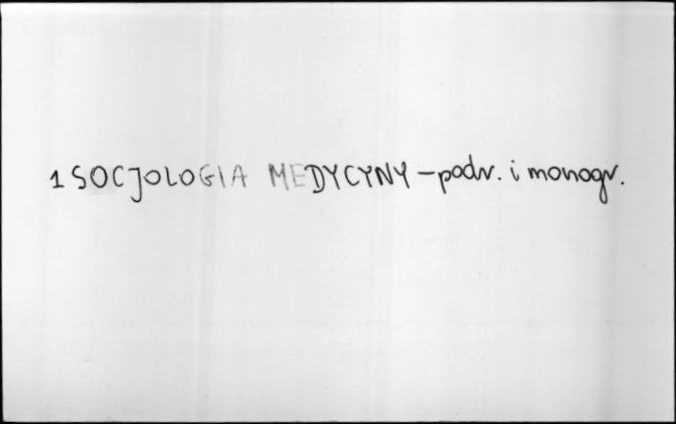 1 SOCJOLOGIA MEDYCYNY - podr. i monogr.